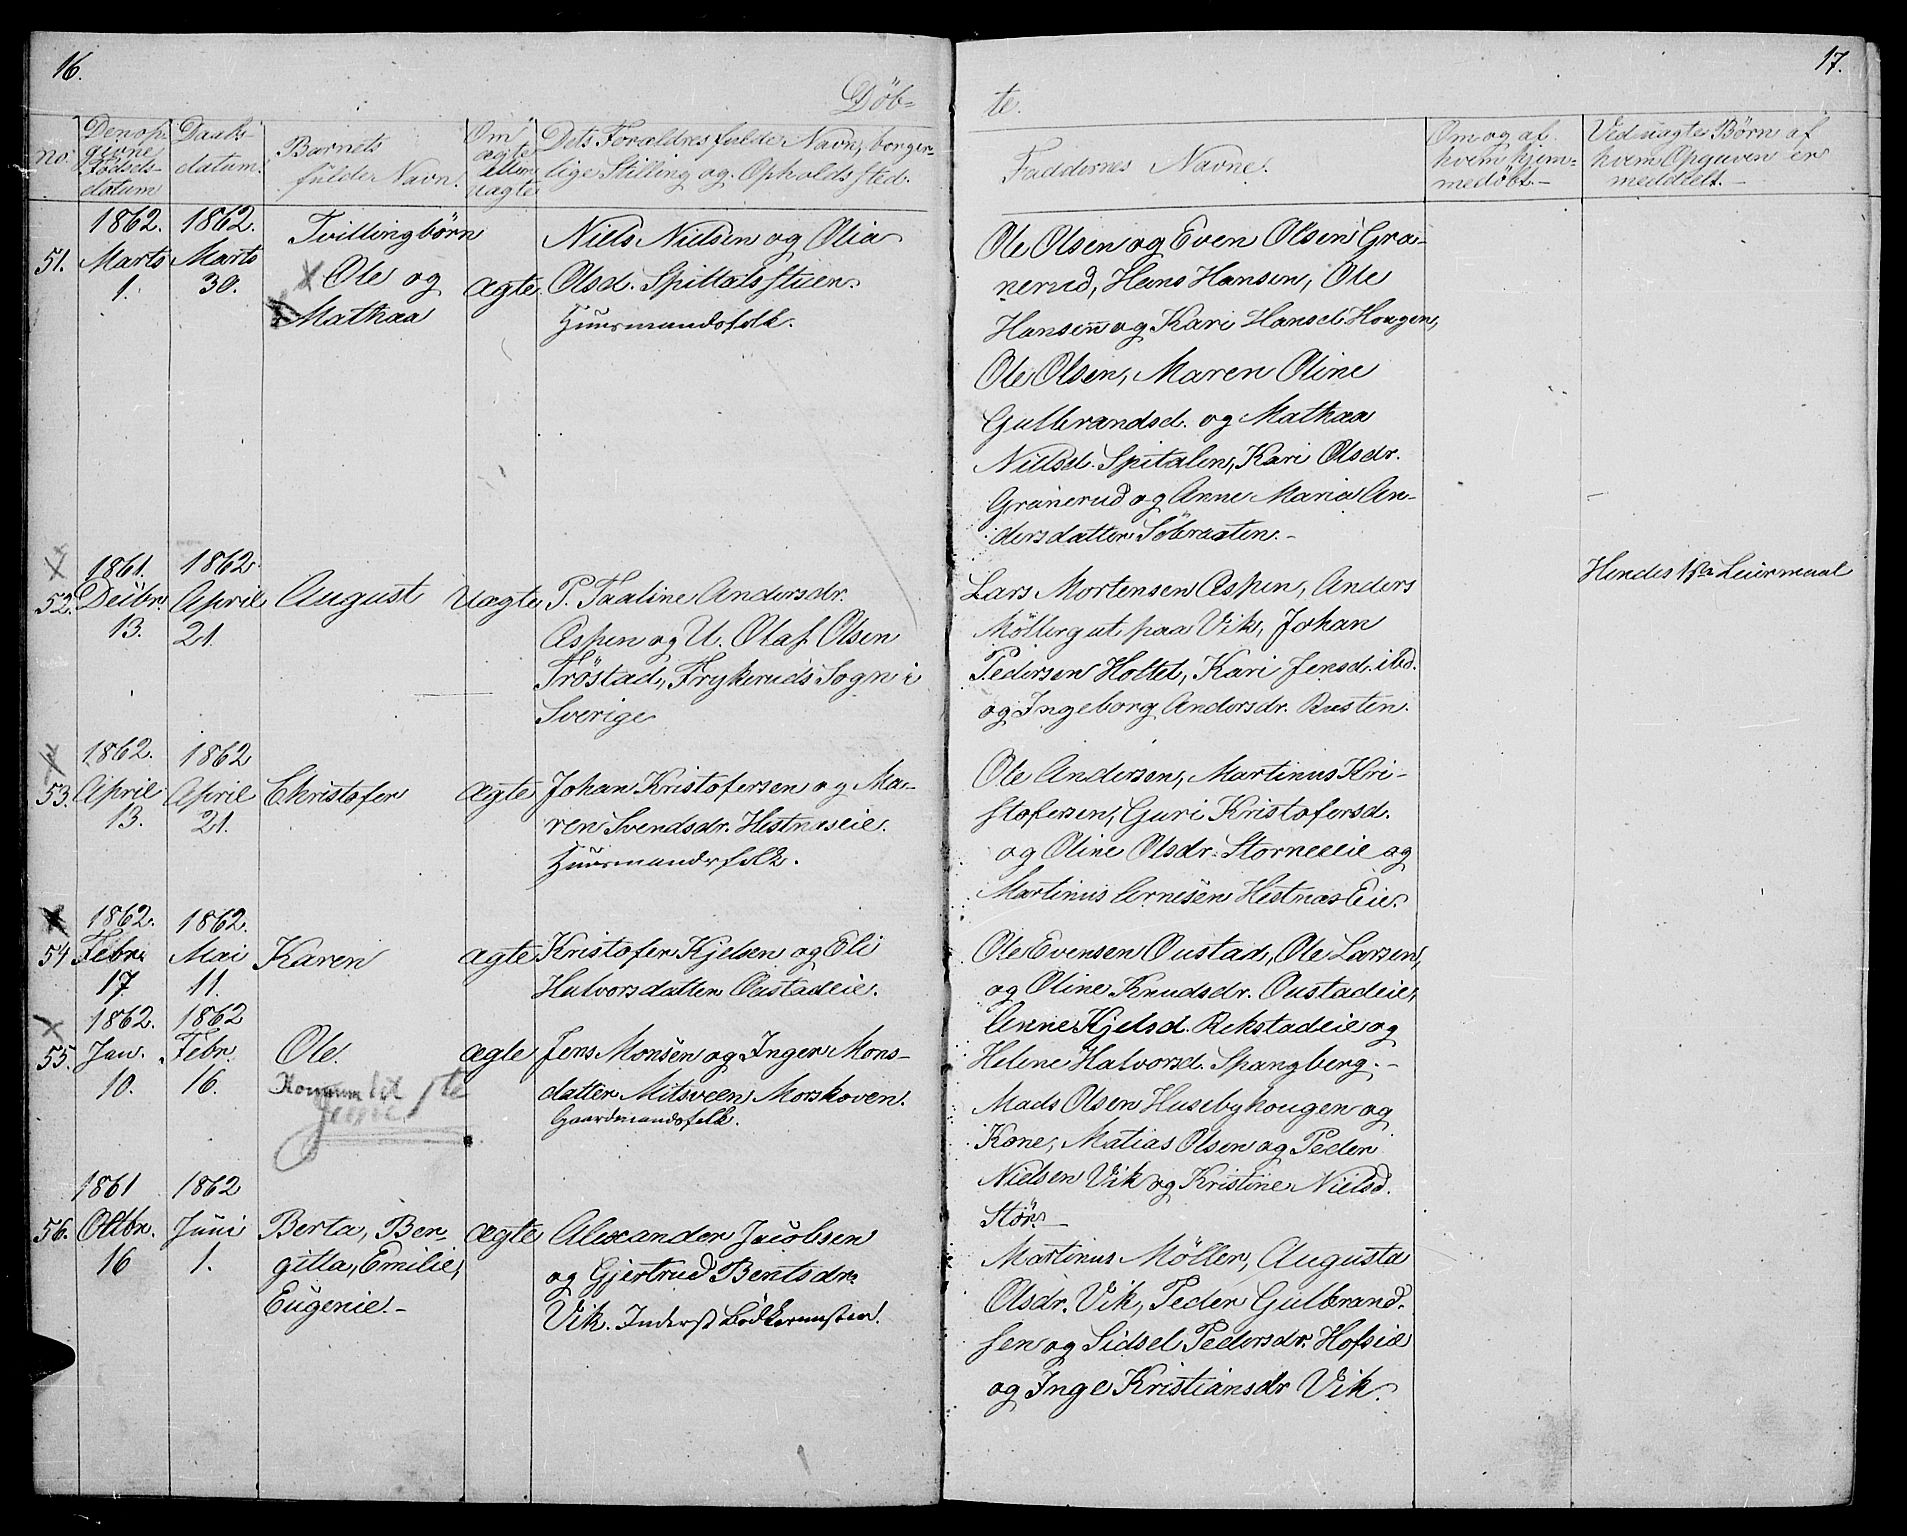 16.
Döb-
no.
Den op-
givne
Födsels-
datum
Daabs-
datum.
Barnets
fulde Navn.
Om
ægte
eller
uægte
Dets Forældres fulde Navn, borger-
lige Stilling og Opholdssted.
51.
1862.
Marts
1.
1862.
Marts
30.
Tvillingbörn
Ole og
Mathea
ægte
Niels Nielsen og Olia
Olsd. Spittalsstuen.
Huusmandsfolk.
52.
1861.
Decbr.
13.
1862.
April
21.
August
Uægte
P. Taaline Andersdr.
Aspen og U. Olaf Olsen
Fröstad, Frykeruds Sogn i
Sverige
53.
1862.
April
13.
1862
April
21.
Christofer
ægte
Johan Kristofersen og Ma-
ren Svendsdr. Hestnæseie.
Huusmandsfolk.
54
1862.
Febr.
17.
1862.
Mai
11.
Karen
ægte
Kristofer Kjelsen og Eli
Halvorsdatter Oustadeie.
55.
1862.
Jan.
10.
1862
Febr.
16.
Ole.
Kommer til
ægte
Jens Monsen og Inger Mons-
datter Mitsveen Morskoven.
Gaardmandsfolk.
56.
1861
Oktbr.
16
1862
Juni
1.
Berta, Ber-
gitta, Emilie,
Eugenie.-
ægte
Alexander Jacobsen
og Gjertrud Bentsdr.
Vik. Inderst
17.
te.
Faddernes Navne.
Om og af
hvem hjem-
medöbt.-
Ved uægte Börn af
hvem Opgaven er
meddelt.-
Ole Olsen og Even Olsen Gra-
nerud, Hans Hansen, Ole
Hansen og Kari Hansd. Hougen,
Ole Olsen, Maren Oline
Gulbrandsd. og Mathea
Nielsd. Spitalen, Kari Olsdr.
Granerud og Anne Maria An-
dersdatter Söbraaten.-
Lars Mortensen Aspen, Anders
Möllergut paa Vik, Johan
Pedersen Holtet, Kari Jensd. ibd.
og Ingeborg Andersdr. Rusten.
Hendes 1ste Leiermaal
Ole Andersen, Martinus Kri-
stofersen, Guri Kristofersd.
og Oline Olsdr. Storneeie og
Martinus Arnesen Hestnæs Eie.
Ole Evensen Oustad, Ole Larsen,
og Oline Knudsdr. Oustadeie,
Anne Kjelsd. Rekstadeie og
Helene Halvorsd. Spangberg.-
Mads Olsen Husebyhougen og
Kone, Matias Olsen og Peder
Nielsen Vik og Kristine Nielsd.
Stör.-
Martinus Möller, Augusta
Olsdr. Vik, Peder Gulbrand-
sen og Sidsel Pedersdr. Hofseie
og Inge Kristiansdr Vik.